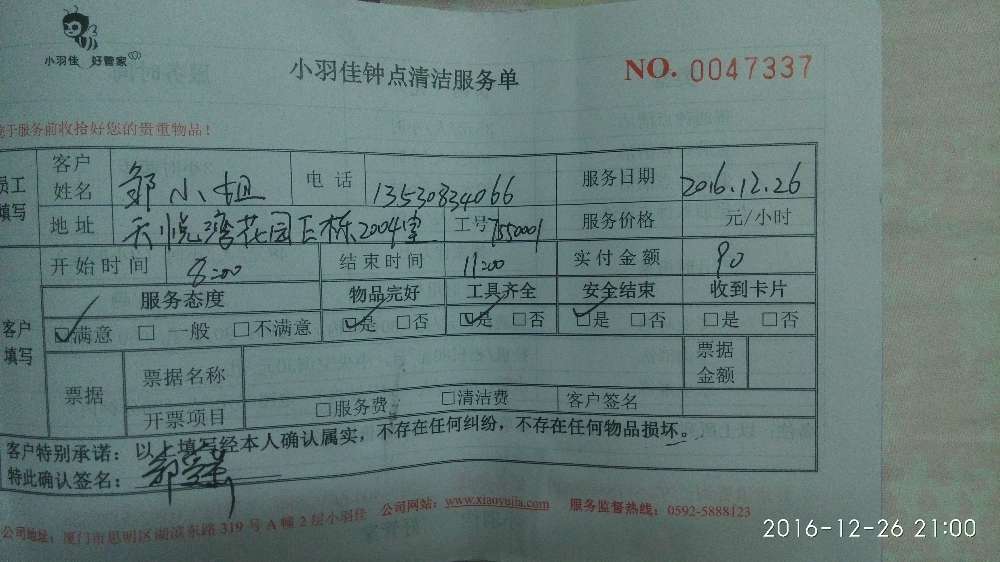 小羽佳 好管家
小羽佳钟点清洁服务单 NO. 0047337
于服务前收拾好您的贵重物品！
员工填写 客户姓名 邹小姐 电话 13530834066 服务日期 2016.12.26
地址 天悦湾花园E栋2004室 工号 7550001 服务价格 元/小时
开始时间 8:00 结束时间 11:00 实付金额 90
客户填写 服务态度 物品完好 工具齐全 安全结束 收到卡片
☑满意 □一般 □不满意 ☑是 □否 ☑是 □否 ☑是 □否 □是 □否
票据 票据名称 票据金额
开票项目 □服务费 □清洁费 客户签名
客户特别承诺：以上填写经本人确认属实，不存在任何纠纷，不存在任何物品损坏。
特此确认签名：
公司地址：厦门市思明区湖滨东路319号A幢2层小羽佳 公司网站：www.xiaoyujia.com 服务监督热线：0592-5888123
2016-12-26 21:00